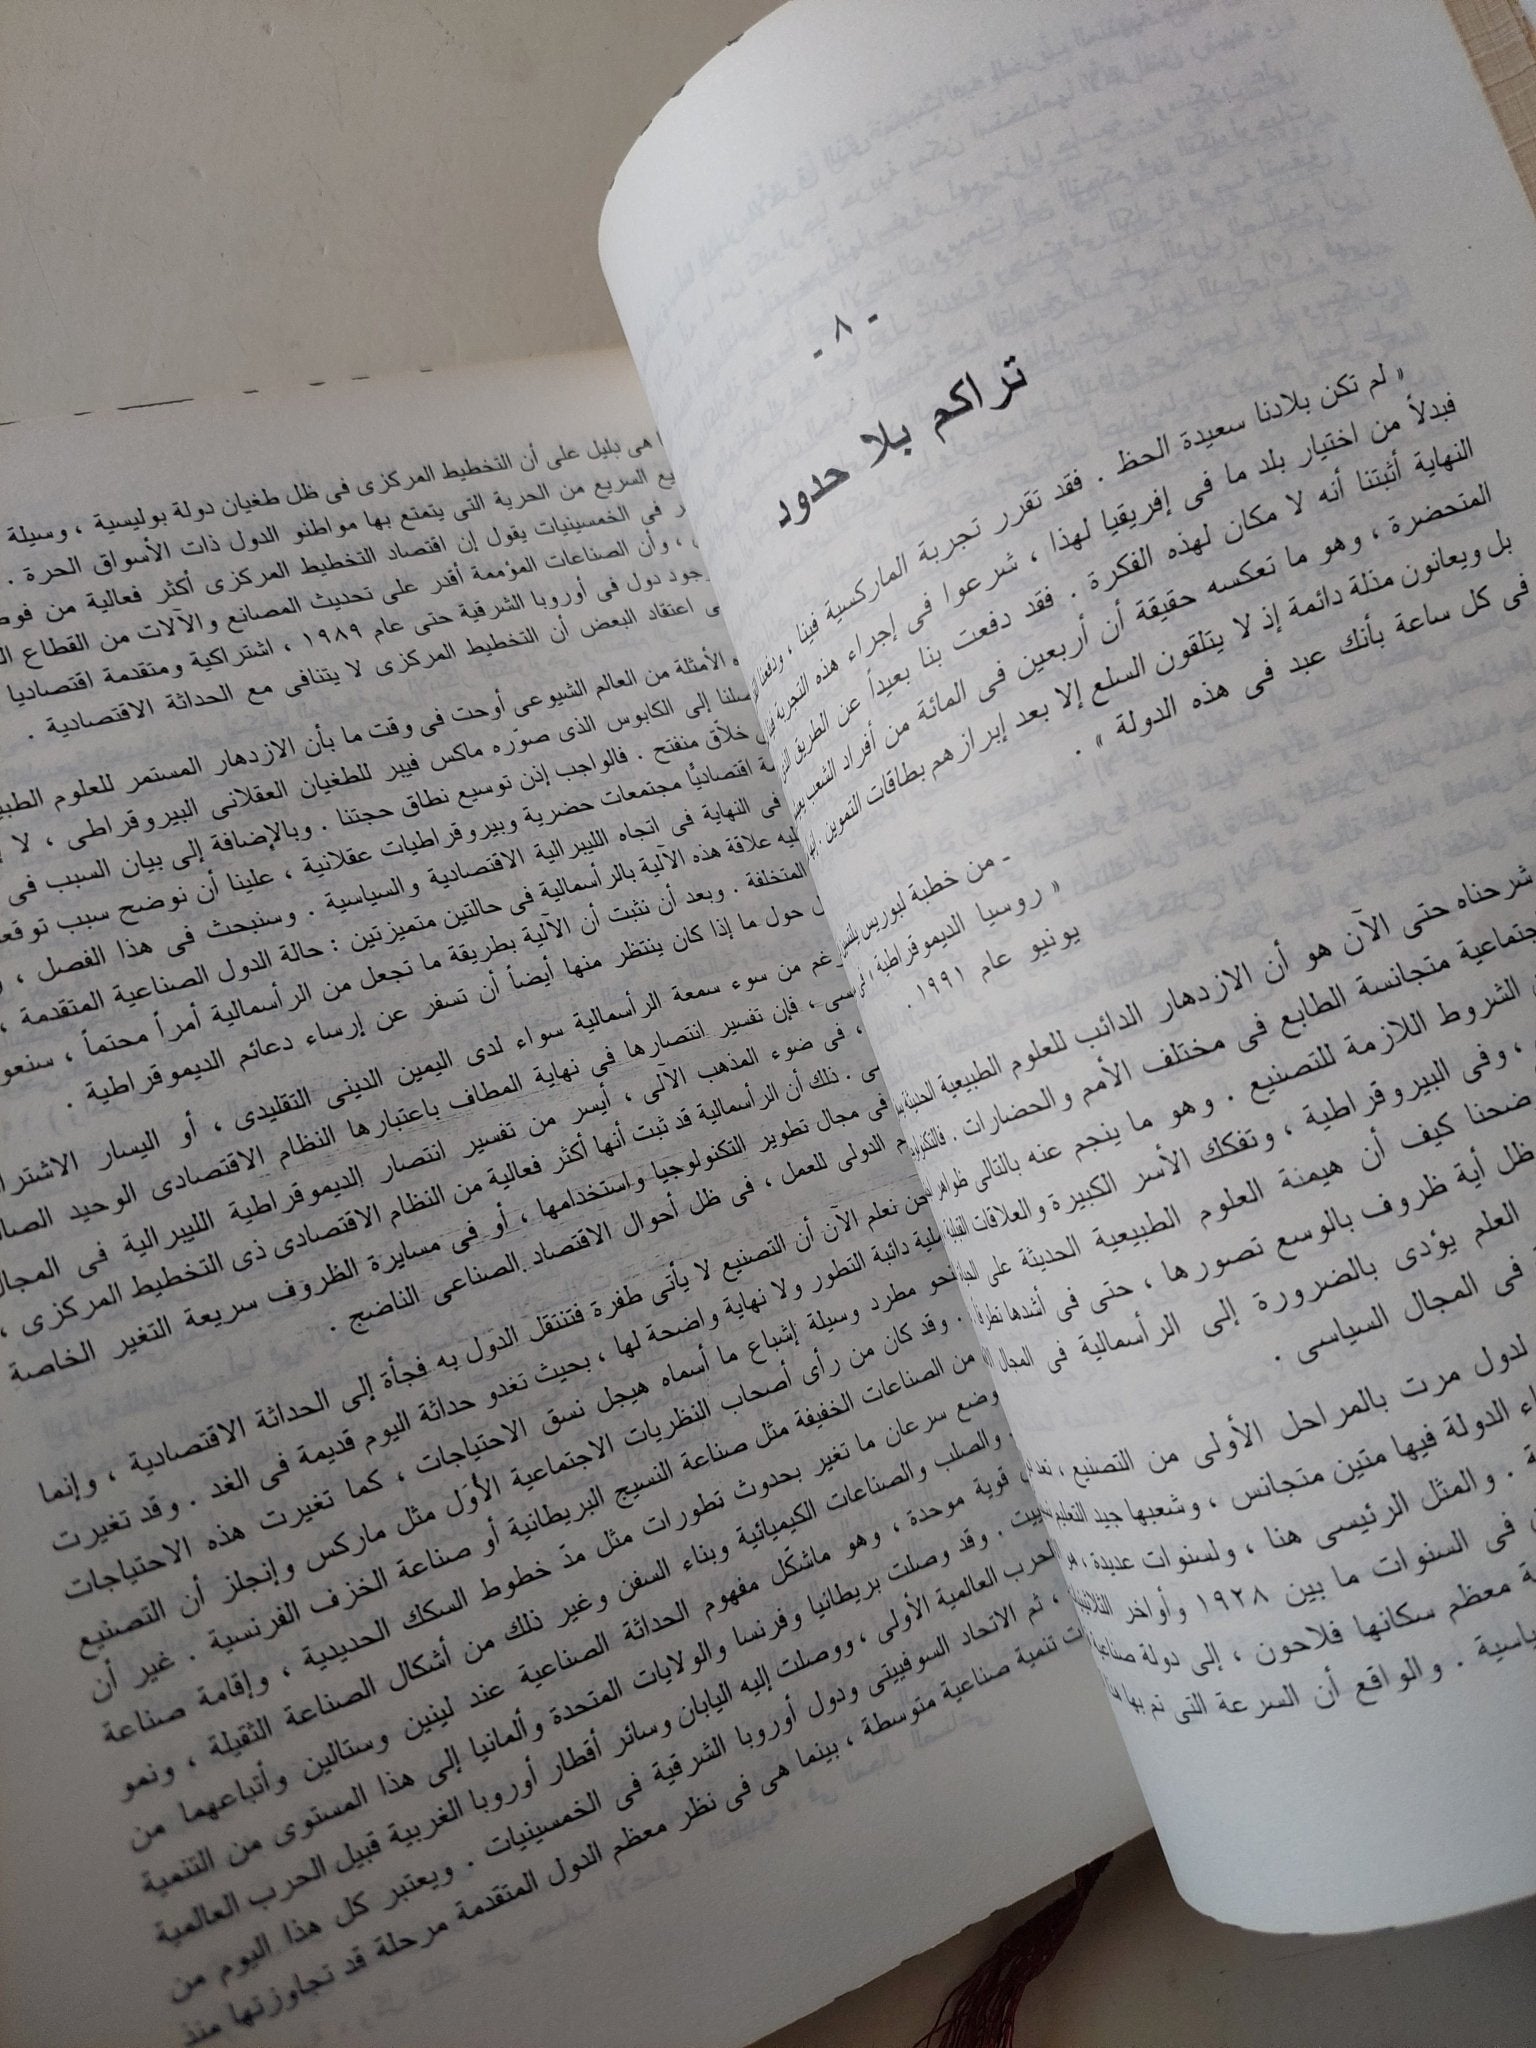 - ٨ -
تراكم بلا حدود
« لم تكن بلادنا سعيدة الحظ . فقد تقرر تجربة الماركسية فينا ،
فبدلاً من اختيار بلد ما فى إفريقيا لهذا ، شرعوا فى إجراء هذه التجربة
النهاية أثبتنا أنه لا مكان لهذه الفكرة . فقد دفعت بنا بعيداً عن الطريق
المتحضرة ، وهو ما تعكسه حقيقة أن أربعين فى المائة من أفراد الشعب
بل ويعانون مذلة دائمة إذ لا يتلقون السلع إلا بعد إبرازهم بطاقات التموين .
فى كل ساعة بأنك عبد فى هذه الدولة » .
- من خطبة لبوريس
« روسيا الديموقراطية ،
يونيو عام ١٩٩١ .
شرحناه حتى الآن هو أن الازدهار الدائب للعلوم الطبيعية
جتماعية متجانسة الطابع فى مختلف الأمم والحضارات .
الشروط اللازمة للتصنيع . وهو ما ينجم عنه بالتالى ظواهر
، وفى البيروقراطية ، وتفكك الأسر الكبيرة والعلاقات
ضحنا كيف أن هيمنة العلوم الطبيعية الحديثة على
ظل أية ظروف بالوسع تصورها ، حتى فى أشدها
العلم يؤدى بالضرورة إلى الرأسمالية فى المجال
فى المجال السياسى .
لدول مرت بالمراحل الأولى من التصنيع ،
ء الدولة فيها متين متجانس ، وشعبها جيد التعليم
ة . والمثل الرئيسى هنا ، ولسنوات عديدة ،
فى السنوات ما بين ١٩٢٨ وأواخر
ة معظم سكانها فلاحون ، إلى دولة
ياسية . والواقع أن السرعة التى تم بها
هى بليل على أن التخطيط المركزى فى ظل طغيان دولة بوليسية ، وسيلة
يع السريع من الحرية التى يتمتع بها مواطنو الدول ذات الأسواق الحرة .
ر فى الخمسينيات يقول إن اقتصاد التخطيط المركزى أكثر فعالية من
، وأن الصناعات المؤممة أقدر على تحديث المصانع والآلات من القطاع
جود دول فى أوروبا الشرقية حتى عام ١٩٨٩ ، اشتراكية ومتقدمة اقتصاديا
ى اعتقاد البعض أن التخطيط المركزى لا يتنافى مع الحداثة الاقتصادية .
ه الأمثلة من العالم الشيوعى أوحت فى وقت ما بأن الازدهار المستمر للعلوم
صلنا إلى الكابوس الذى صوّره ماكس فيبر للطغيان العقلانى البيروقراطى ، لا
خلاّق منفتح . فالواجب إذن توسيع نطاق حجتنا . وبالإضافة إلى بيان السبب فى
ة اقتصاديًا مجتمعات حضرية وبيروقراطيات عقلانية ، علينا أن نوضح سبب
فى النهاية فى اتجاه الليبرالية الاقتصادية والسياسية . وسنبحث فى هذا الفصل ،
يه علاقة هذه الآلية بالرأسمالية فى حالتين متميزتين : حالة الدول الصناعية المتقدمة ،
المتخلفة . وبعد أن نثبت أن الآلية بطريقة ما تجعل من الرأسمالية أمراً محتماً ،
ل حول ما إذا كان ينتظر منها أيضاً أن تسفر عن إرساء دعائم الديموقراطية .
رغم من سوء سمعة الرأسمالية سواء لدى اليمين الدينى التقليدى ، أو اليسار
سى ، فإن تفسير انتصارها فى نهاية المطاف باعتبارها النظام الاقتصادى الوحيد
، فى ضوء المذهب الآلى ، أيسر من تفسير انتصار الديموقراطية الليبرالية فى
ى . ذلك أن الرأسمالية قد ثبت أنها أكثر فعالية من النظام الاقتصادى ذى التخطيط المركزى ،
فى مجال تطوير التكنولوجيا واستخدامها ، أو فى مسايرة الظروف سريعة التغير الخاصة
م الدولى للعمل ، فى ظل أحوال الاقتصاد الصناعى الناضج .
حن نعلم الآن أن التصنيع لا يأتى طفرة فتنتقل الدول به فجأة إلى الحداثة الاقتصادية ، وإنما
لية دائبة التطور ولا نهاية واضحة لها ، بحيث تغدو حداثة اليوم قديمة فى الغد . وقد تغيرت
نحو مطرد وسيلة إشباع ما أسماه هيجل نسق الاحتياجات ، كما تغيرت هذه الاحتياجات
. وقد كان من رأى أصحاب النظريات الاجتماعية الأوَل مثل ماركس وإنجلز أن التصنيع
من الصناعات الخفيفة مثل صناعة النسيج البريطانية أو صناعة الخزف الفرنسية . غير أن
وضع سرعان ما تغير بحدوث تطورات مثل مدّ خطوط السكك الحديدية ، وإقامة صناعة
. والصلب والصناعات الكيميائية وبناء السفن وغير ذلك من أشكال الصناعة الثقيلة ، ونمو
قوية موحدة ، وهو ماشكّل مفهوم الحداثة الصناعية عند لينين وستالين وأتباعهما من
ييت . وقد وصلت بريطانيا وفرنسا والولايات المتحدة وألمانيا إلى هذا المستوى من التنمية
الحرب العالمية الأولى ، ووصلت إليه اليابان وسائر أقطار أوروبا الغربية قبيل الحرب العالمية
، ثم الاتحاد السوفييتى ودول أوروبا الشرقية فى الخمسينيات . ويعتبر كل هذا اليوم من
ات تنمية صناعية متوسطة ، بينما هى فى نظر معظم الدول المتقدمة مرحلة قد تجاوزتها منذ